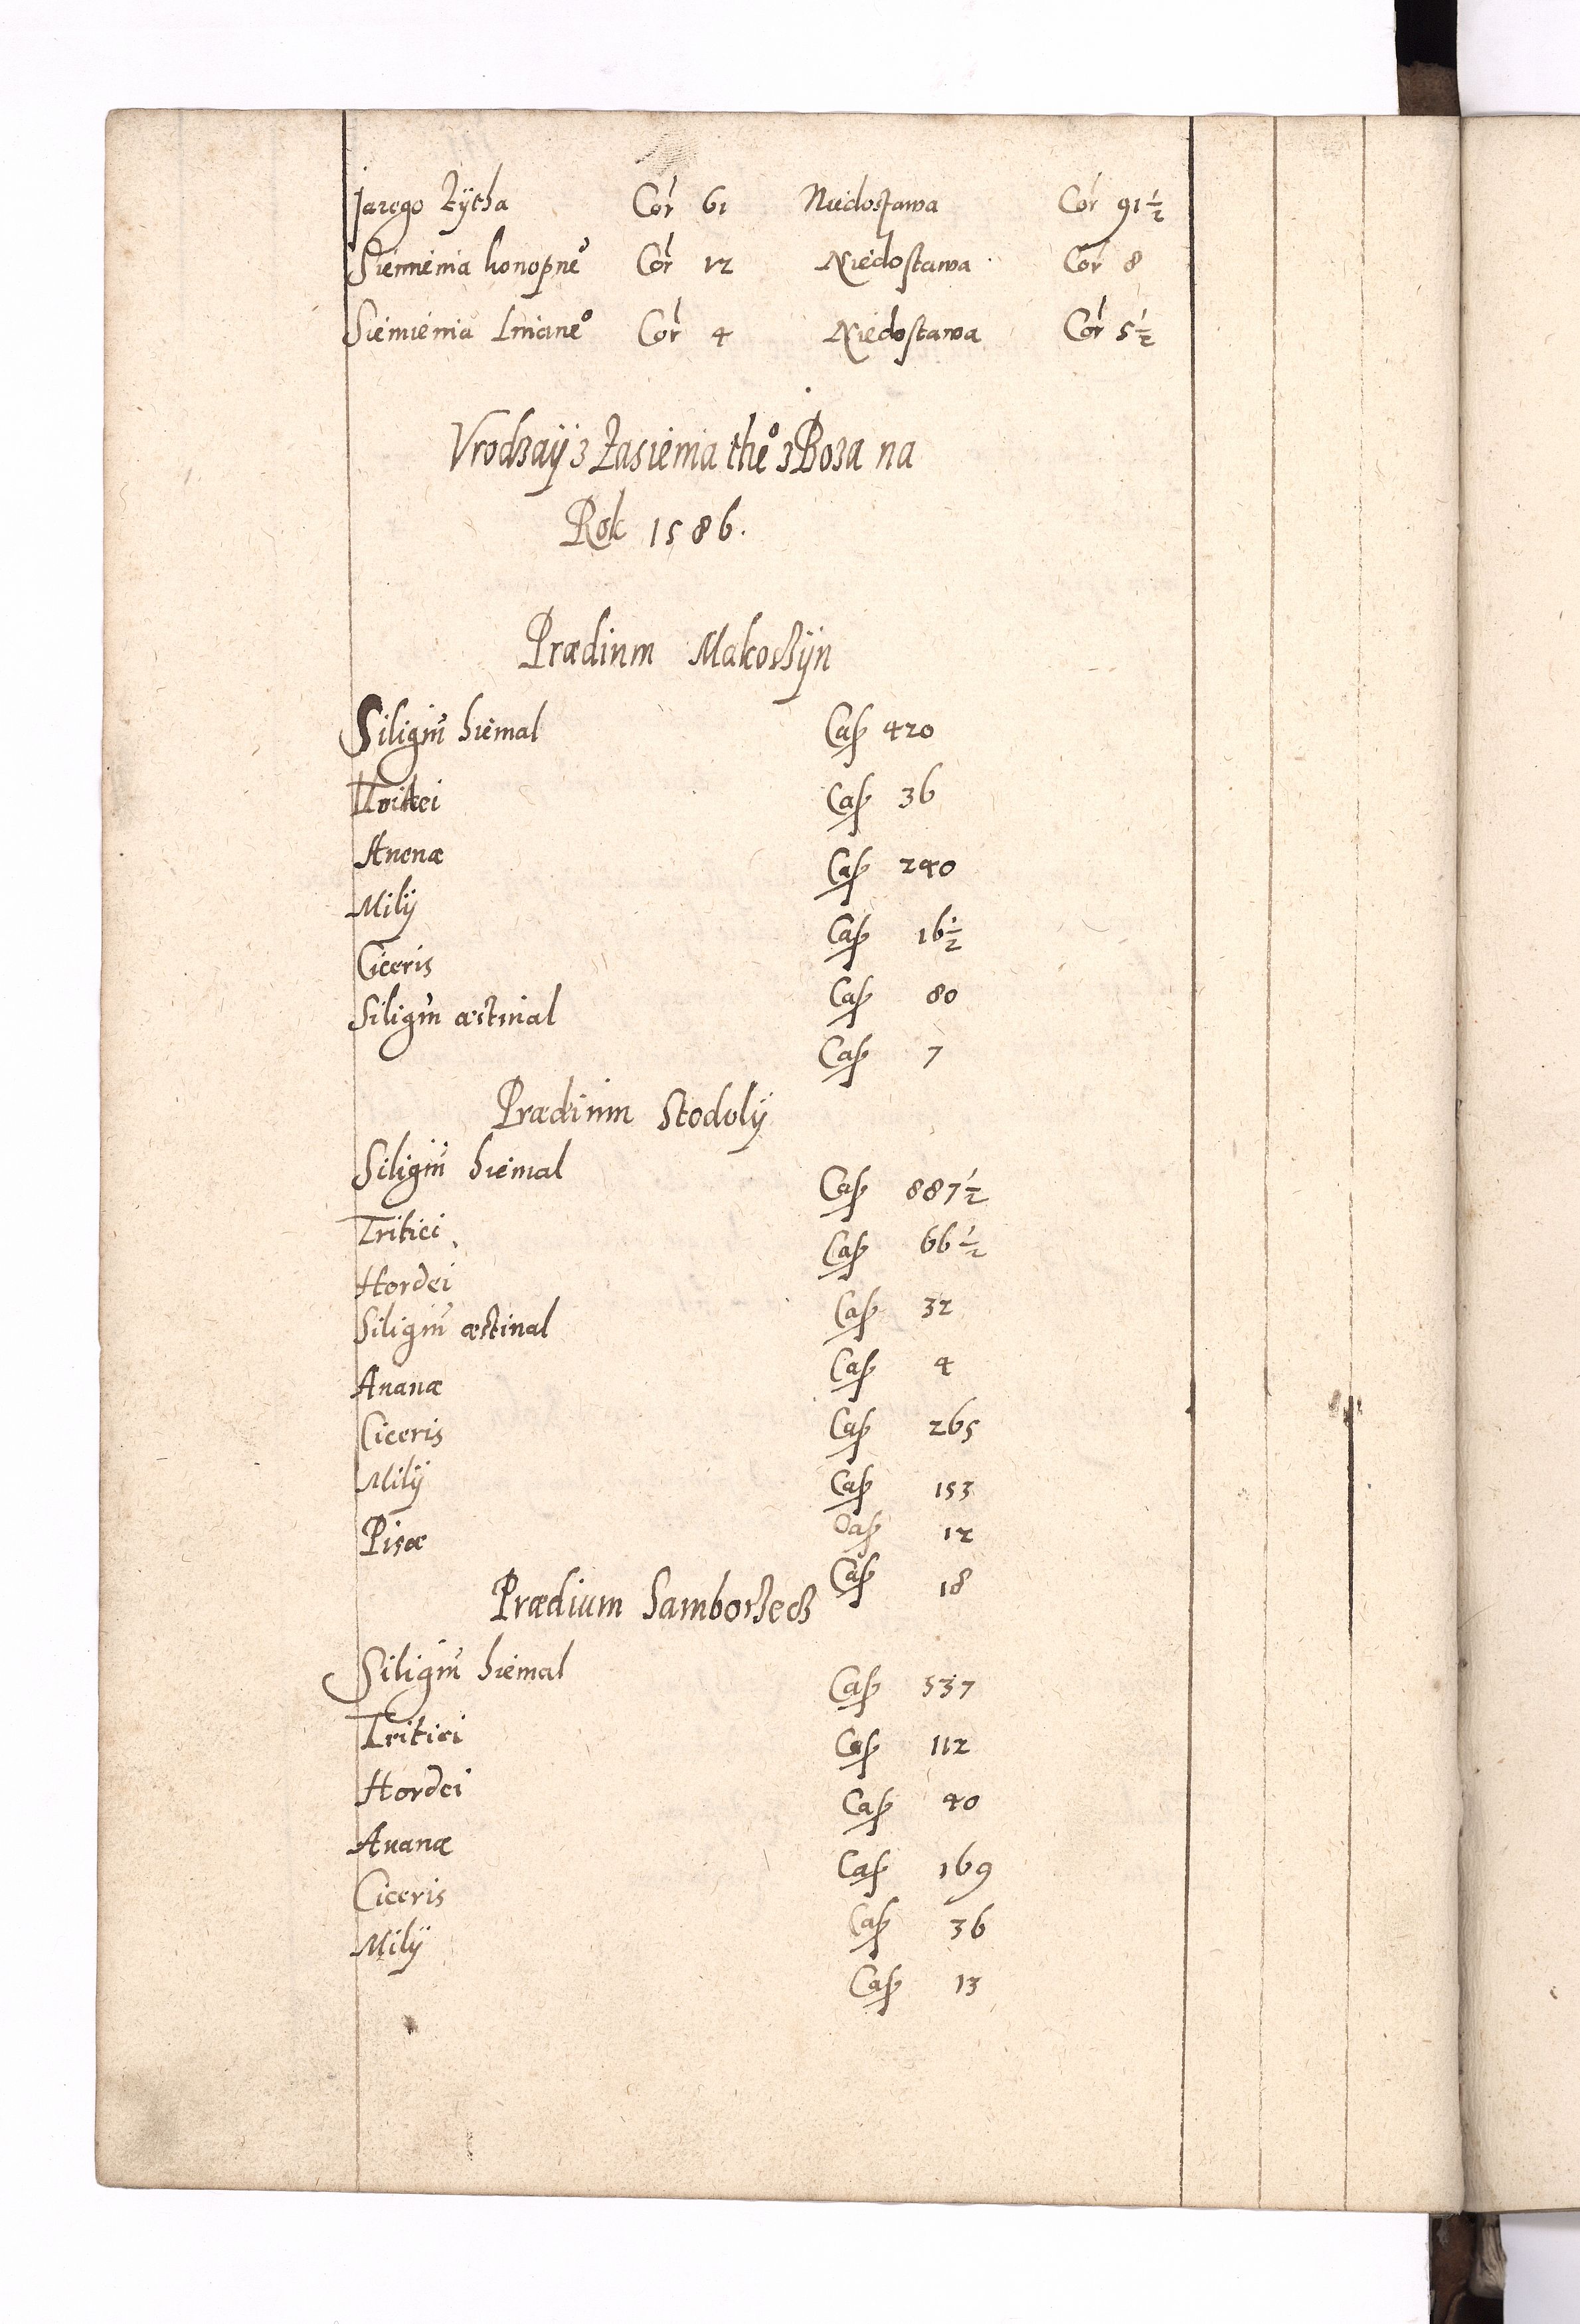 Jarego Zÿtha Cor 61 Niedostawa Cor 91½
Siemienia konopne° Cor 12 Niedostawa Cor 8
Siemienia Lniane° Cor 4 Niedostawa Cor 5½
Vrodzaÿ z Zasienia the° zBoza na
Rok 1586.
Prædium Makoszÿn
Siligin̄ hiemal Cas 420
Tritici Cas 36
Auenæ Cas 240
Milÿ Cas 16½
Ciceris Cas 80
Siligin̄ æstiual Cas 7
Prædium Stodolÿ
Siligin̄ hiemal Cas 887½
Tritici Cas 66½
Hordei Cas 32
Siligin̄ æstiual Cas 4
Auanæ Cas 265
Ciceris Cas 153
Milÿ Cas 12
Pisæ Cas 18
Prædium Samborzecz
Siligin̄ hiemal Cas 537
Tritici Cas 112
Hordei Cas 40
Auanæ Cas 169
Ciceris Cas 36
Milÿ Cas 13